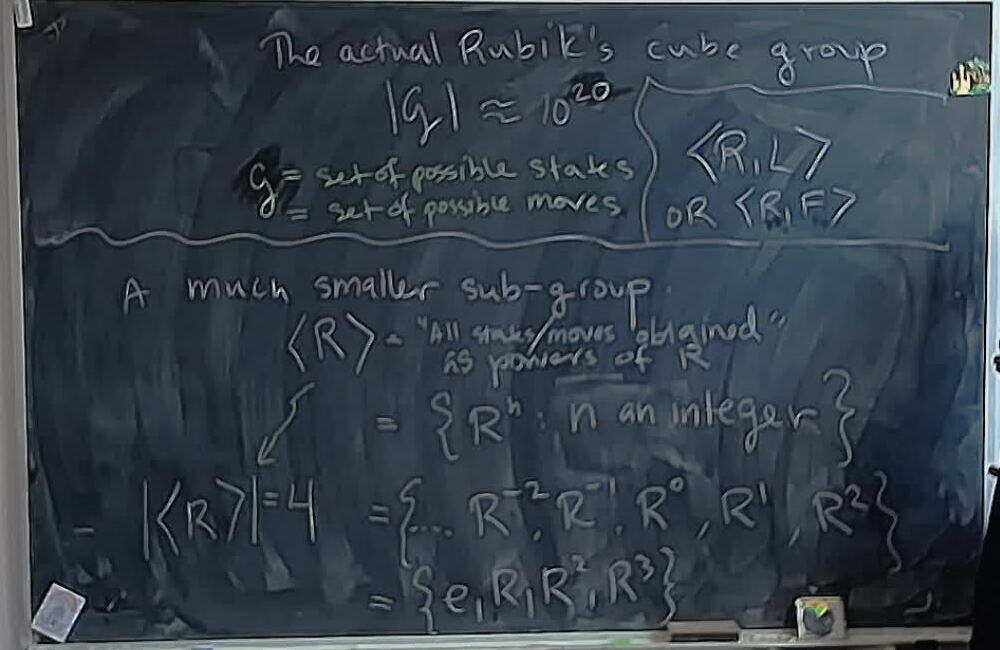 The actual Rubik's cube group
|G| ≈ 10^20
G = set of possible states
= set of possible moves
⟨R, L⟩
OR ⟨R, F⟩
A much smaller sub-group.
⟨R⟩ = "All states/moves obtained"
as powers of R
= {R^n : n an integer}
|⟨R⟩| = 4
= {... R^-2, R^-1, R^0, R^1, R^2}
= {e, R, R^2, R^3}